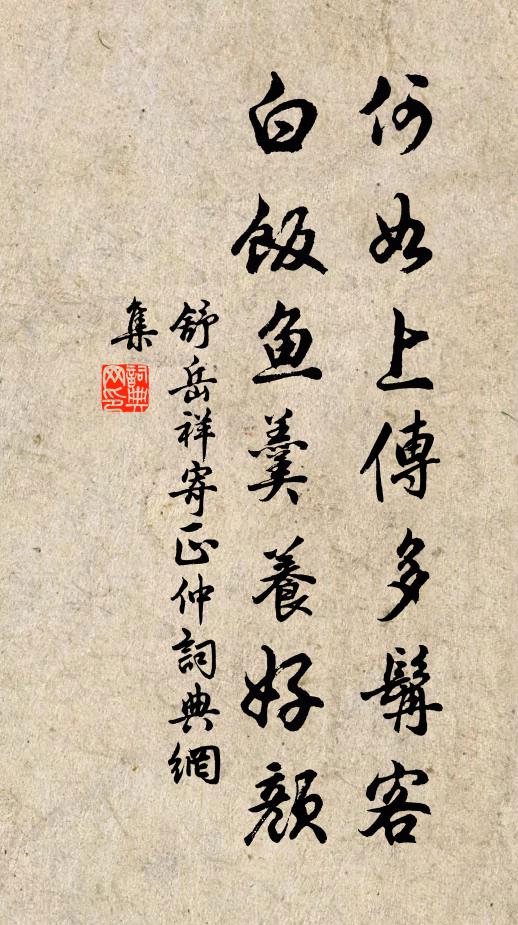 何如上傳多髯客
白飯魚羹養好顏
舒岳祥寄正仲詞典網
集
詞典
网印